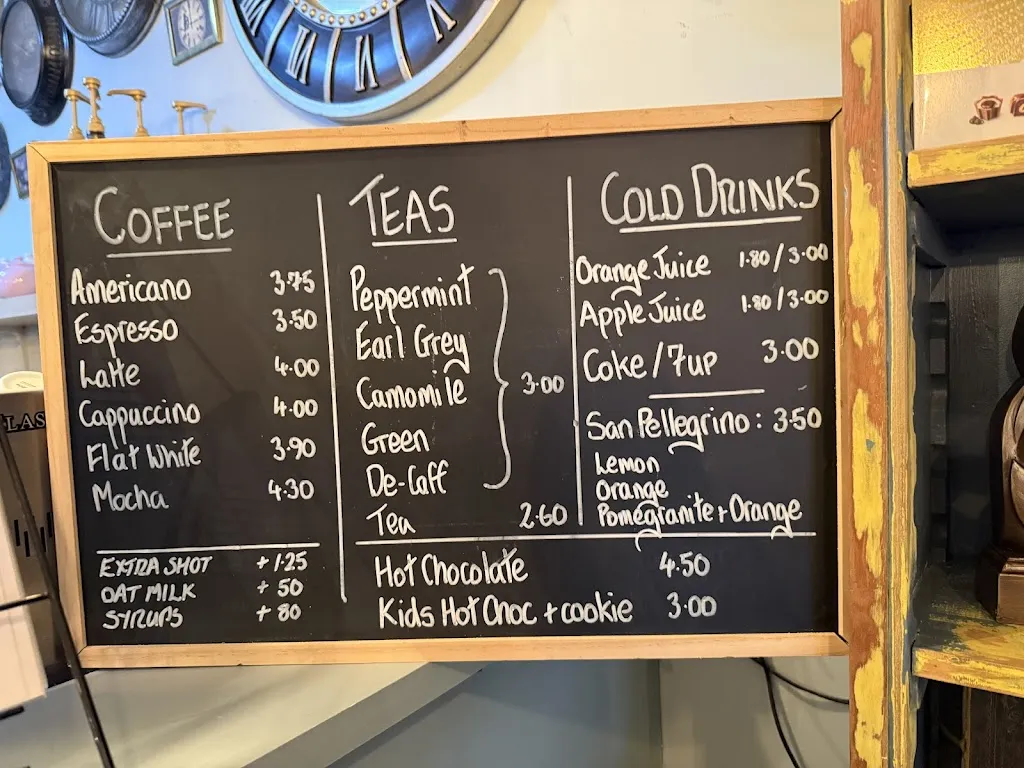 COFFEE
Americano 3.75
Espresso 3.50
Latte 4.00
Cappuccino 4.00
Flat White 3.90
Mocha 4.30
EXTRA SHOT + 1.25
OAT MILK + 50
SYRUPS + 80
TEAS
Peppermint
Earl Grey
Camomile
Green
De-Caff
3.00
Tea 2.60
COLD DRINKS
Orange Juice 1.80 / 3.00
Apple Juice 1.80 / 3.00
Coke / 7up 3.00
San Pellegrino : 3.50
Lemon
Orange
Pomegranite + Orange
Hot Chocolate 4.50
Kids Hot Choc + cookie 3.00
LAS